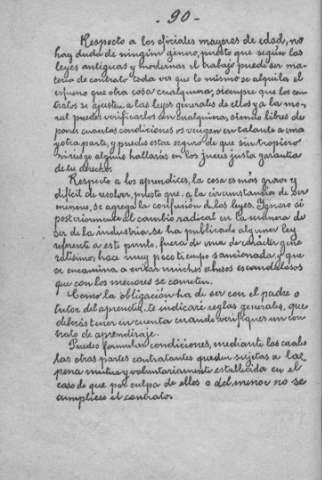 - 90 -
Respecto a los oficiales mayores de edad, no
hay duda de ningún genero, puesto que según las
leyes antiguas y modernas el trabajo puede ser ma-
teria de contrato toda vez que lo mismo se alquila el
esfuerzo que otra cosa cualquiera; siempre que los con-
tratos se ajusten a las leyes generales de ellos y a la mo-
ral puedes verificarlos con cualquiera, siendo libres de
poner cuantas condiciones os vengan en talante a una
y otra parte, y puedes estar seguro de que sin tropiezo
ni riesgo alguno hallarás en los jueces justa garantía
de tu derecho.
Respecto a los aprendices, la cosa es mas grave y
difícil de resolver, puesto que, a la circunstancia de ser
menores, se agrega la confusión de las leyes. Ignoro si
posteriormente al cambio radical en la manera de
ser de la industria, se ha publicado alguna ley
referente a este punto, fuera de una de carácter gene-
ralísimo, hace muy poco tiempo sancionada, y que
se encamina a evitar muchos abusos escandalosos
que con los menores se cometen.
Como la obligación ha de ser con el padre o
tutor del aprendiz, te indicaré reglas generales, que
deberás tener en cuenta cuando verifiques un con-
trato de aprendizaje.
Puedes formular condiciones, mediante las cuales
las otras partes contratantes queden sujetas a la
pena mutua y voluntariamente establecida en el
caso de que por culpa de ellos o del menor no se
cumpliese el contrato.